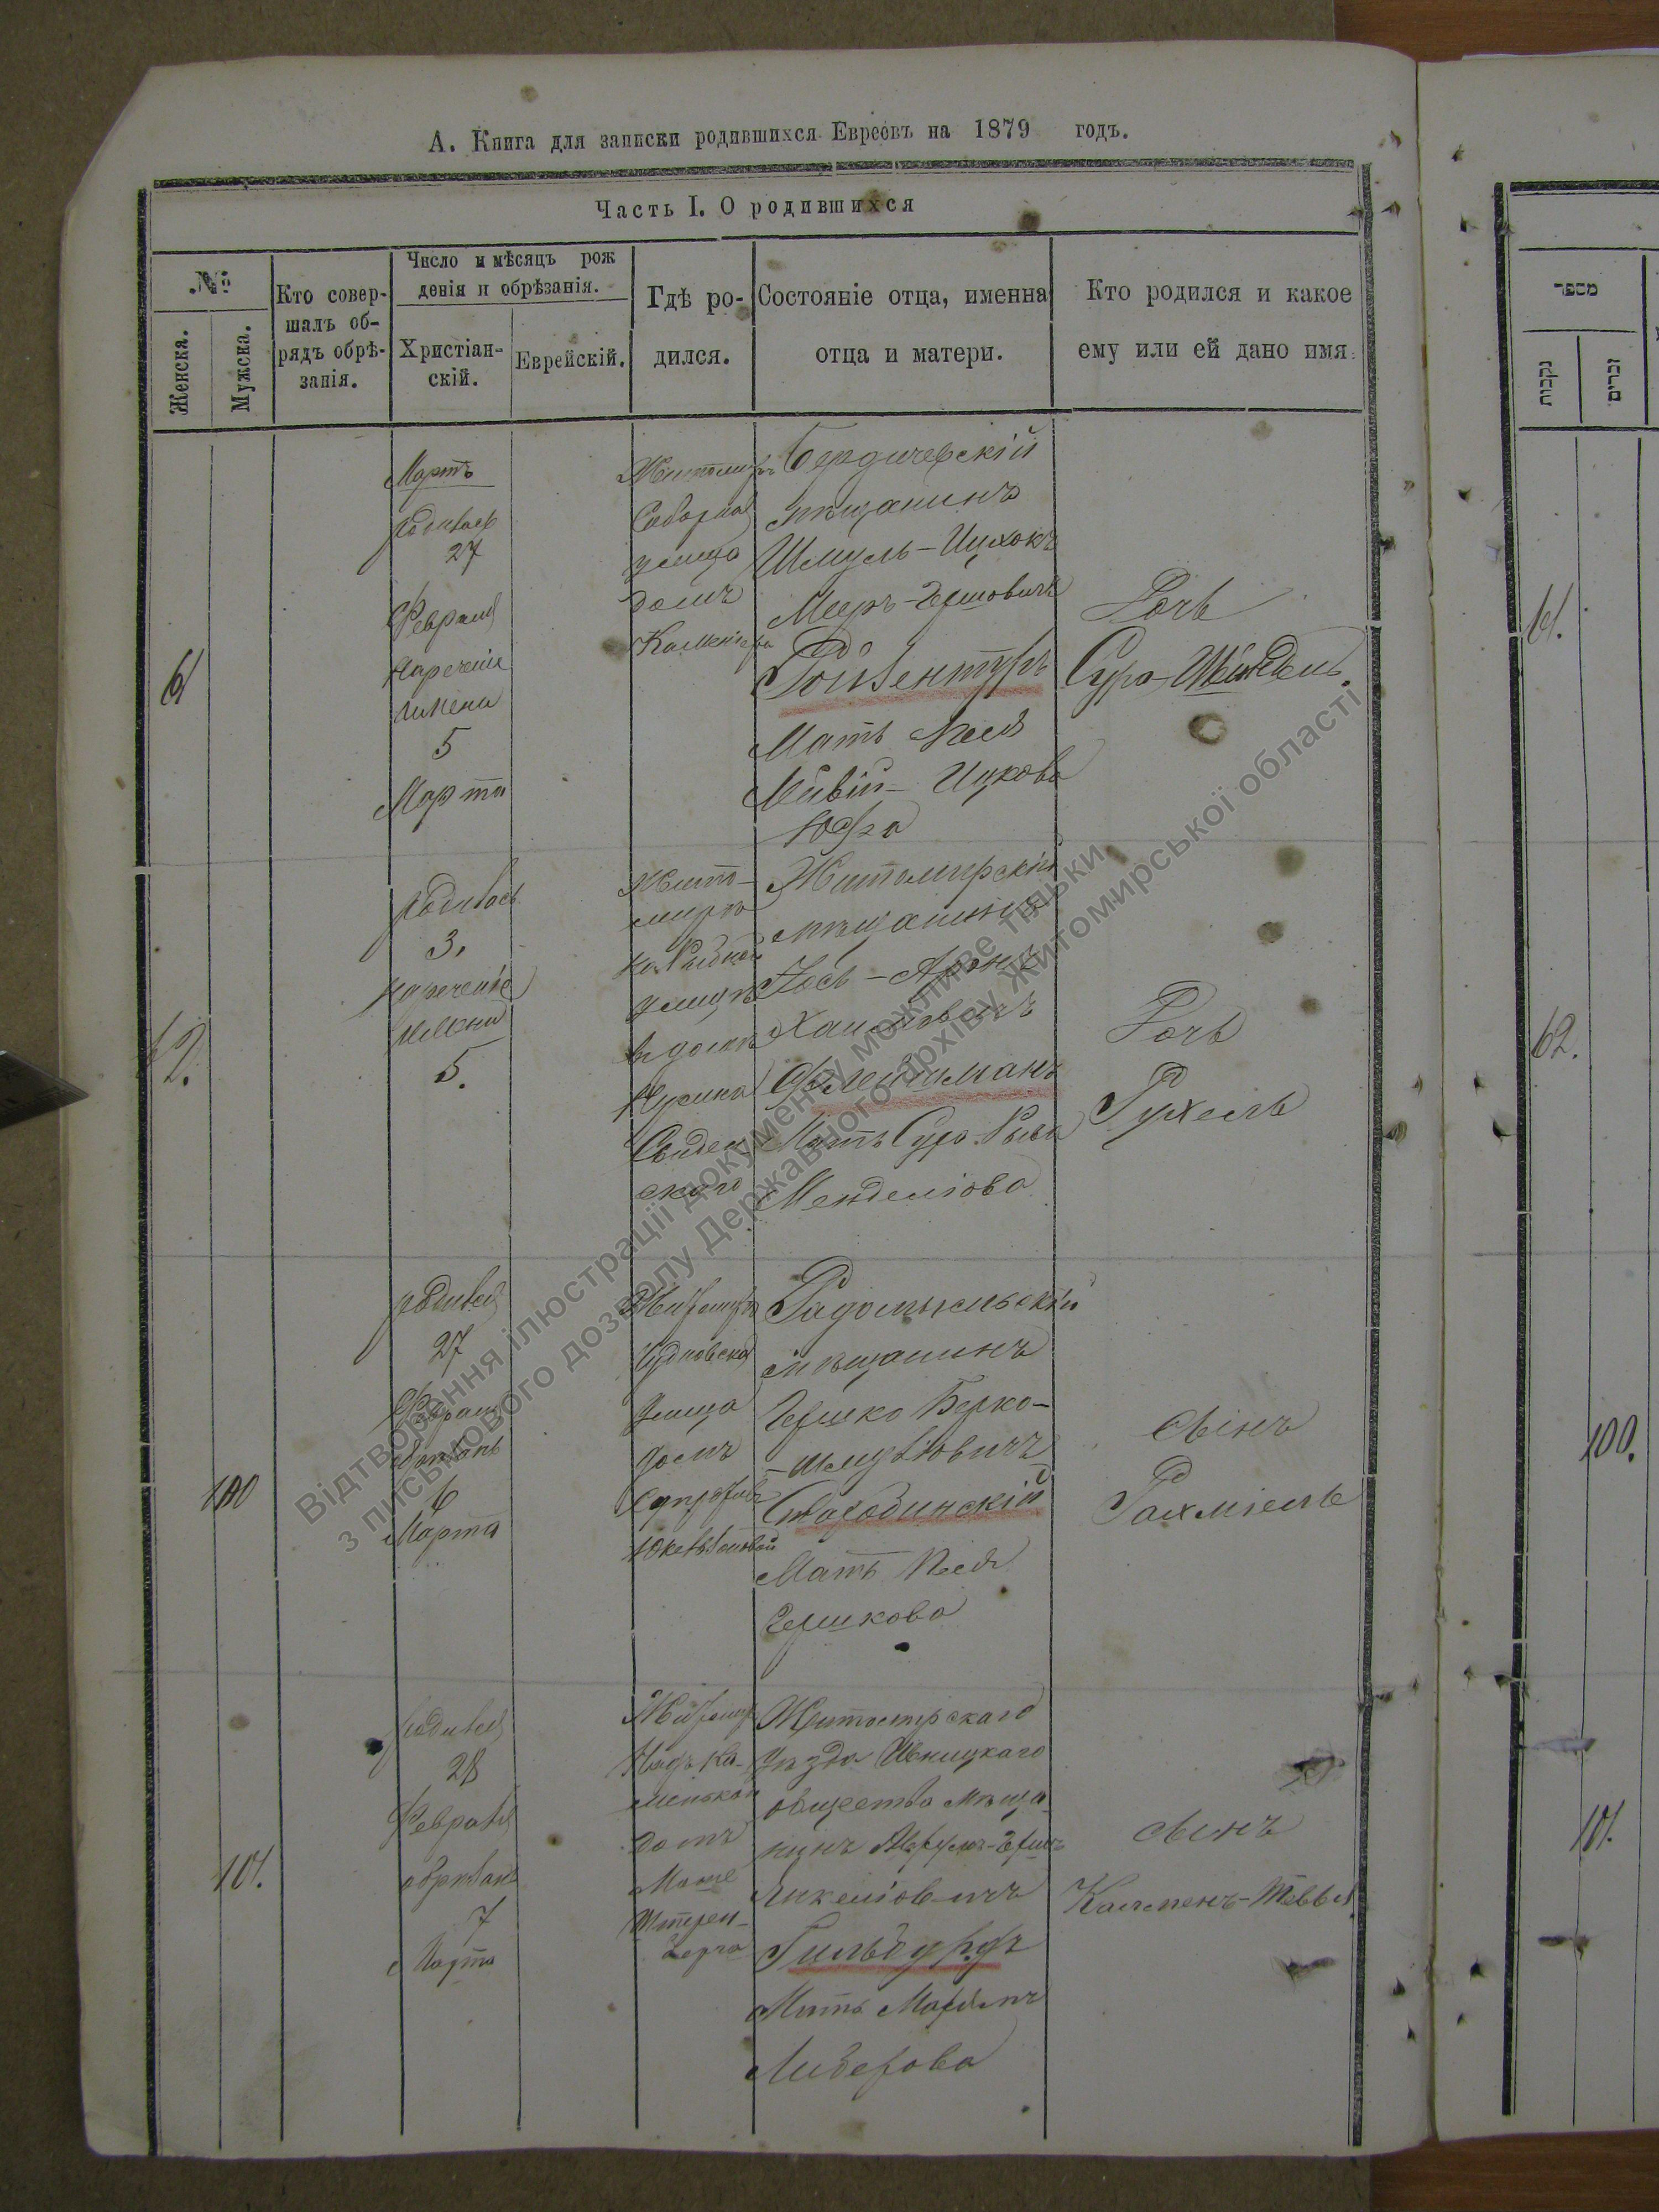 А. Книга для записки родившихся Евреовъ на 1879 годъ.
Часть I. О родившихся
№
Женска.
Мужска.
Кто совер-
шалъ об-
рядъ обрѣ-
занія.
Число и мѣсяцъ рож
денія и обрѣзанія.
Христіан-
скій.
Еврейскій.
Гдѣ ро-
дился.
Состояніе отца, именна
отца и матери.
Кто родился и какое
ему или ей дано имя.
61
Мартъ
родилась
27
Февраля
наречение
имени
5
Марта
Житомиръ
Соборная
улица
домъ
Бердичевскій
мещанинъ
Шмуль-Ицхокъ
Меер-Гершовичъ
Ройзентуръ
Мать Песя
Ицкова
Дочь
Сура-Шейндель.
62.
родилась
3.
наречение
имени
5.
Жито-
миръ
улицѣ
въ домѣ
Нусина
скаго
Житомирскій
мѣщанинъ
Іось-Аронъ
Флейшманъ
Мать Сура Рыва
Менделіова
Дочь
Рухель
100
родился
27
Февраля
обрѣзанъ
6
Марта
Житомиръ
Чудновская
улица
домъ
Радомысльскій
мѣщанинъ
Гершко Берко-
-Шмулиовичъ
Слободинскій
Мать Песя
Гершкова
Сынъ
Рахміель
101.
родился
28
Февраля
обрѣзанъ
7
Марта
Житомиръ
Надъ Ка-
менькой
домъ
Мошe
Житомирскаго
уѣзда Ивницкаго
общества мѣща
нинъ
Янкеліов-ичъ
Гильбурдъ
Мать Марьямъ
Лидерова
Сынъ
Калменъ-Тевья
מספר
נקבות
זכרים
61.
62.
100.
101.
Відтворення ілюстрації документу можливе тільки
з письмового дозволу Державного архіву Житомирської області